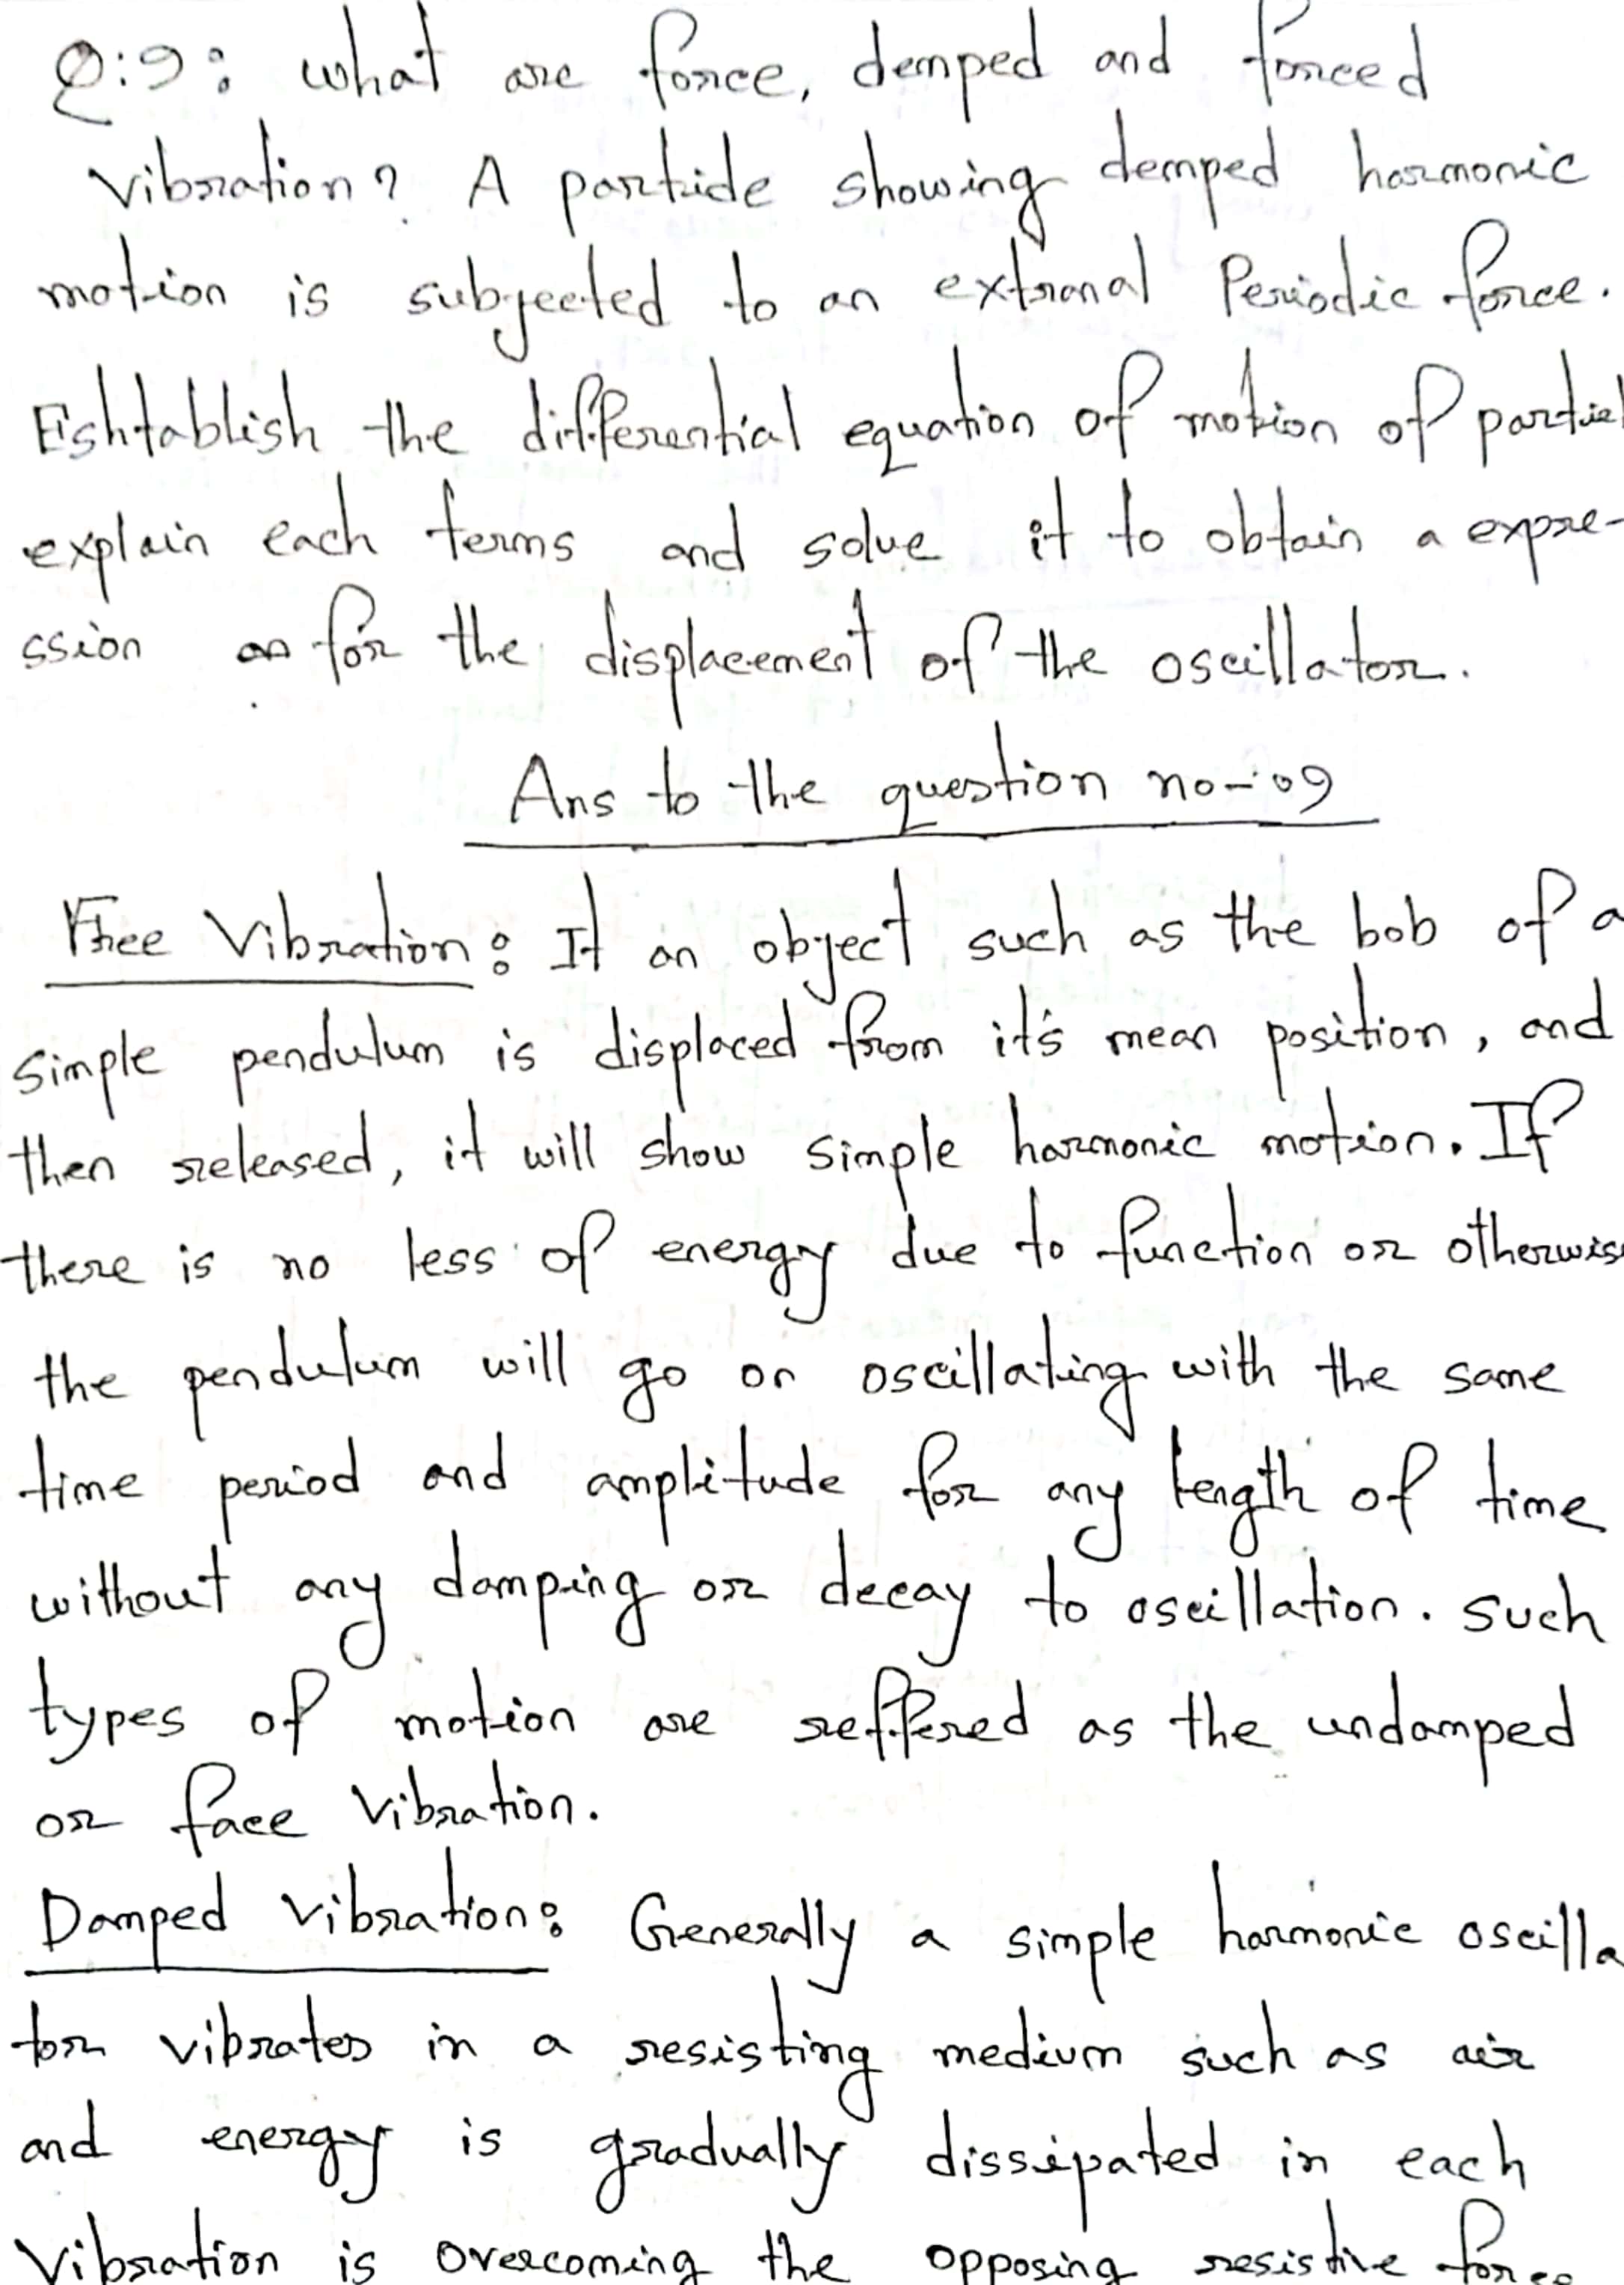 Q:9: what are force, demped and forced
vibration? A partide showing demped harmonic
motion is subjected to an extranal Periodic force.
Eshtablish the differential equation of motion of partiel
explain each terms and solve it to obtain a expre-
ssion as for the displacement of the oscillator.
Ans to the question no-09
Free Vibration: It an object such as the bob of a
simple pendulum is displaced from it's mean position, and
then released, it will show simple harmonic motion. If
there is no less of energy due to function or otherwis
the pendulum will go on oscillating with the same
time period and amplitude for any length of time
without any damping or decay to oscillation. such
types of motion are reffered as the undamped
or face vibration.
Damped vibration: Generally a simple harmonic oscilla
tor vibrates in a resisting medium such as air
and energy is gradually dissipated in each
vibration is overcoming the opposing resistive force